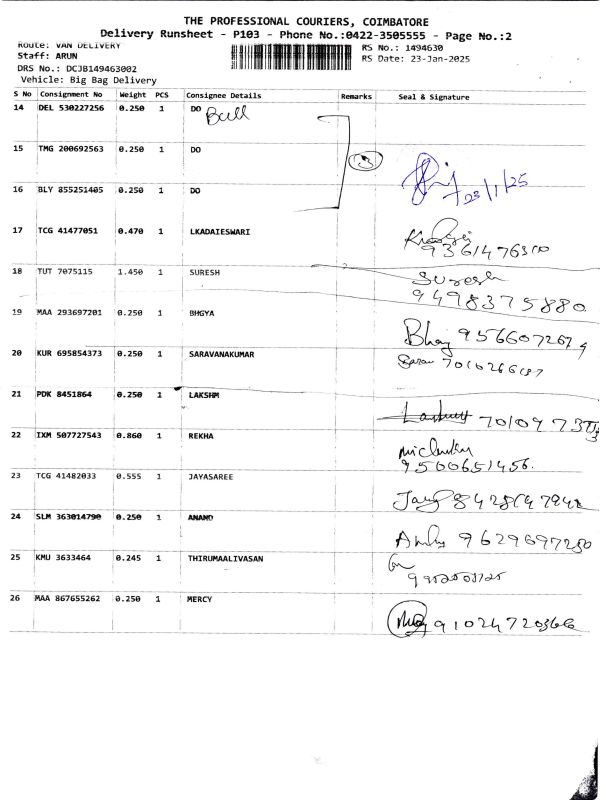 THE PROFESSIONAL COURIERS, COIMBATORE
Delivery Runsheet - P103 - Phone No.:0422-3505555 - Page No.:2
Route: VAN DELIVERY
Staff: ARUN
DRS No.: DCJB149463002
Vehicle: Big Bag Delivery
RS No.: 1494630
RS Date: 23-Jan-2025
S No Consignment No Weight PCS Consignee Details Remarks Seal & Signature
14 DEL 530227256 0.250 1 DO
15 TMG 200692563 0.250 1 DO
3
23/1/25
16 BLY 855251405 0.250 1 DO
17 TCG 41477051 0.470 1 LKADAIESWARI
18 TUT 7075115 1.450 1 SURESH Suresh
9498375880
19 MAA 293697201 0.250 1 BHGYA
20 KUR 695854373 0.250 1 SARAVANAKUMAR
21 PDK 8451864 0.250 1 LAKSHM
22 IXM 507727543 0.860 1 REKHA
9500651456.
23 TCG 41482033 0.555 1 JAYASAREE
24 SLM 363014790 0.250 1 ANAND
9629697250
25 KMU 3633464 0.245 1 THIRUMAALIVASAN
26 MAA 867655262 0.250 1 MERCY